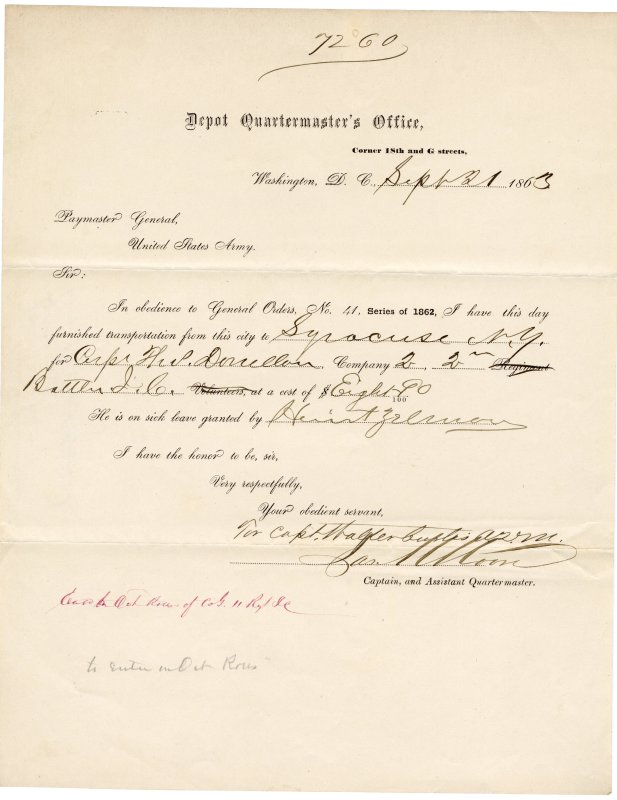 7260
Depot Quartermaster's Office,
Corner 18th and G streets,
Washington, D. C., Sept 21 1863
Paymaster General,
United States Army.
Sir:
In obedience to General Orders, No. 41, Series of 1862, I have this day
furnished transportation from this city to Syracuse N.Y.
for Corpl Donellon Company 2, 2nd Regiment
Battln I. C. Volunteers, at a cost of $ Eight 90/100
He is on sick leave granted by
I have the honor to be, sir,
Very respectfully,
Your obedient servant,
For Capt. Walter Curtis A.Q.M.
Moore
Captain, and Assistant Quartermaster.
Oct Rolls of Co G. 11 Regt I C
to enter on Oct Rolls